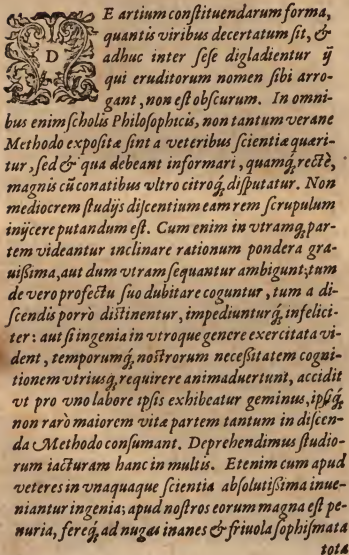 DE artium conſtituendarum forma,
quantis viribus decertatum ſit, &
adhuc inter ſeſe digladientur ij
qui eruditorum nomen ſibi arro-
gant, non eſt obſcurum. In omni-
bus enim ſcholis Philoſophicis, non tantum verane
Methodo expoſitæ ſint a veteribus ſcientiæ quæri-
tur, ſed & qua debeant informari, quamq́; rectè,
magnis cū conatibus vltro citroq́; diſputatur. Non
mediocrem ſtudijs diſcentium eam rem ſcrupulum
inijcere putandum eſt. Cum enim in vtramq; par-
tem videantur inclinare rationum pondera gra-
uißima, aut dum vtram ſequantur ambigunt; tum
de vero profectu ſuo dubitare coguntur, tum a di-
ſcendis porrò diſtinentur, impediunturq́; infelici-
ter: aut ſi ingenia in vtroque genere exercitata vi-
dent, temporumq́; noſtrorum neceßitatem cogni-
tionem vtriusq; requirere animaduertunt, accidit
vt pro vno labore ipſis exhibeatur geminus, ipſiq́;
non rarò maiorem vitæ partem tantum in diſcen-
da Methodo conſumant. Deprehendimus ſtudio-
rum iacturam hanc in multis. Etenim cum apud
veteres in vnaquaque ſcientia abſolutißima inue-
niantur ingenia; apud noſtros eorum magna eſt pe-
nuria, ferèq́; ad nugas inanes & friuola ſophiſmata
tota